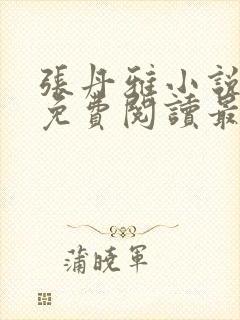 張丹雅小說
免費閱讀最
蒲曉軍